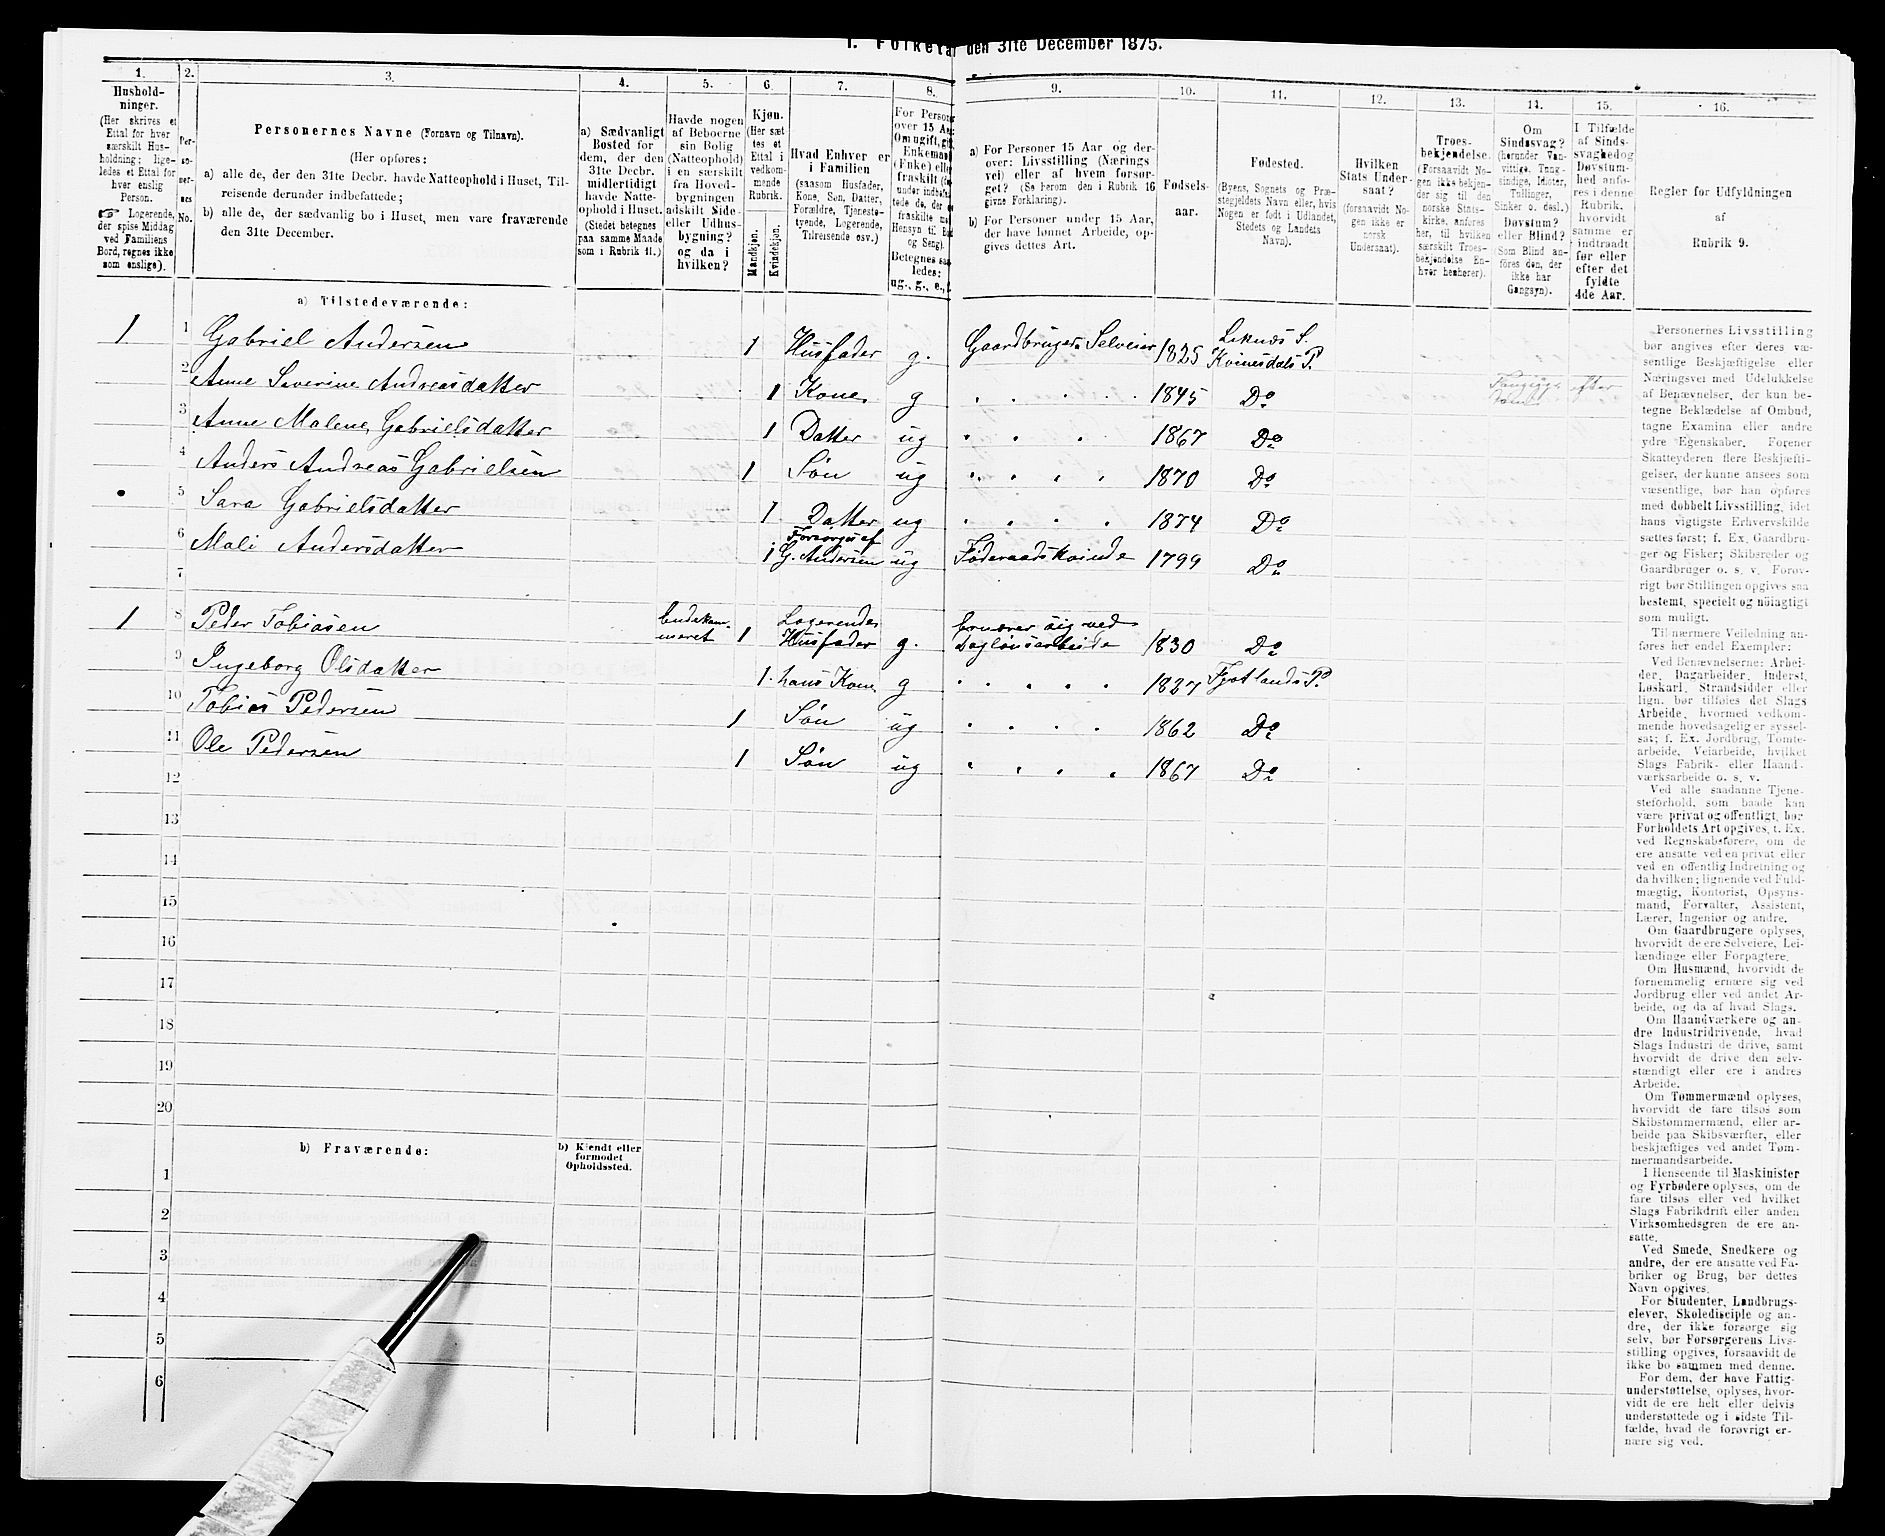 I. Folketal den 31te December 1875.
1. 2. 3. 4. 5. 6. 7. 8. 9. 10. 11. 12. 13. 14. 15. 16.
Hushold-
ninger.
(Her skrives et
Ettal for hver
særskilt Hus-
holdning; lige-
ledes et Ettal for
hver enslig
Person.
☞ Logerende,
der spise Middag
ved Familiens
Bord, regnes ikke
som enslige).
Per-
so-
ner-
nes
No.
Personernes Navne (Fornavn og Tilnavn).
(Her opføres:
a) alle de, der den 31te Decbr. havde Natteophold i Huset, Til-
reisende derunder indbefattede;
b) alle de, der sædvanlig bo i Huset, men vare fraværende
den 31te December.
a) Sædvanligt
Bosted for
dem, der den
31te Decbr.
midlertidigt
havde Natte-
ophold i Huset.
(Stedet betegnes
paa samme Maade
som i Rubrik 11.)
Havde nogen
af Beboerne
sin Bolig
(Natteophold)
i en særskilt
fra Hoved-
bygningen
adskilt Side-
eller Udhus-
bygning?
og da i
hvilken?
Kjøn.
(Her sæt-
tes et
Ettal i
vedkom-
mende
Rubrik.
Mandkjøn.
Kvindekjøn.
Hvad Enhver er
i Familien
(saasom Husfader,
Kone, Søn, Datter,
Forældre, Tjeneste-
tyende, Logerende,
Tilreisende osv.)
For Person
over 15 Aa
Om ugift, gif
Enkemand
(Enke) elle
fraskilt (he
under indbefat
tede de, der e
fraskilte me
Hensyn til Bo
og Seng).
Betegnes saa
ledes:
ug., g., e., f.
a) For Personer 15 Aar og der-
over: Livsstilling (Nærings
vei) eller af hvem forsor-
get? (Se herom den i Rubrik 16
givne Forklaring).
b) For Personer under 15 Aar,
der have lønnet Arbeide, op-
gives dettes Art.
Fødsels-
aar.
Fødested.
(Byens, Sognets og Præ-
stegjeldets Navn eller, hvis
Nogen er født i Udlandet,
Stedets og Landets
Navn).
Hvilken
Stats Under-
saat?
(forsaavidt No-
gen ikke er
norsk
Undersaat).
Troes-
bekjendelse.
(Forsaavidt No-
gen ikke bekjen-
der sig til den
norske Stats-
kirke, anføres
her, til hvilken
særskilt Troes-
bekjendelse En-
hver henhører).
Om
Sindssvag?
(herunder Van-
vittige, Tung-
sindige, Idioter,
Tullinger,
Sinker o. desl.)
Døvstum?
eller Blind?
(Som Blind an-
føres den, der
ikke har
Gangsyn).
I Tilfælde
af Sinds-
svaghed og
Døvstum-
hed anfø-
res i denne
Rubrik,
hvorvidt
samme er
indtraadt
før eller
efter det
fyldte
4de Aar.
Regler for Udfyldningen
af
Rubrik 9.
a) Tilstedeværende:
1 1 Gabriel Andersen 1 Husfader g. Gaardbruger Selveier 1825 Leknæs S.
Kvinesdals P.
2 Anne Severine Andreasdatter 1 Kone g 1845 Do efter
3 Anne Malene Gabrielsdatter 1 Datter ug 1867 Do
4 Anders Andreas Gabrielsen 1 Søn ug 1870 Do
5 Sara Gabrielsdatter 1 Datter ug 1874 Do
6 Mali Andersdatter 1 Forsørges af
G. Andersen ug Føderaadskvinde 1799 Do
7
1 8 Peder Tobiasen 1 Logerende
Husfader g. ernærer sig ved
Daglønsarbeide 1830 Do
9 Ingeborg Olsdatter 1 hans Kone g 1827 Fjotlands P.
10 Tobias Pedersen 1 Søn ug 1862 Do
11 Ole Pedersen 1 Søn ug 1867 Do
12
13
14
15
16
17
18
19
20
b) Fraværende:
b) Kjendt eller
formodet
Opholdssted.
1
2
3
4
5
6
Personernes Livsstilling
bør angives efter deres væ-
sentlige Beskjæftigelse eller
Næringsvei med Udelukkelse
af Benævnelser, der kun be-
tegne Beklædelse af Ombud,
tagne Examina eller andre
ydre Egenskaber. Forener
Skatteyderen flere Beskjæfti-
gelser, der kunne ansees som
væsentlige, bør han opføres
med dobbelt Livsstilling, idet
hans vigtigste Erhvervskilde
sættes først; f. Ex. Gaardbru-
ger og Fisker; Skibsreder og
Gaardbruger o. s. v. Forøv-
rigt bør Stillingen opgives saa
bestemt, specielt og nøiagtigt
som muligt.
Til nærmere Veiledning an-
føres her endel Exempler:
Ved Benævnelserne: Arbei-
der, Dagarbeider, Inderst,
Løskarl, Strandsidder eller
lign. bør tilføies det Slags
Arbeide, hvormed vedkom-
mende hovedsagelig er syssel-
sat; f. Ex. Jordbrug, Tomte-
arbeide, Veiarbeide, hvilket
Slags Fabrik- eller Haand-
værksarbeide o. s. v.
Ved alle saadanne Tjene-
steforhold, som baade kan
være privat og offentligt, bør
Forholdets Art opgives, t. Ex.
ved Regnskabsførere, om de
ere ansatte ved en privat eller
ved en offentlig Indretning og
da hvilken; lignende ved Fuld-
mægtig, Kontorist, Opsyns-
mand, Forvalter, Assistent,
Lærer, Ingeniør og andre.
Om Gaardbrugere oplyses,
hvorvidt de ere Selveiere, Lei-
lændinge eller Forpagtere.
Om Husmænd, hvorvidt de
fornemmelig ernære sig ved
Jordbrug eller ved andet Ar-
beide, og da af hvad Slags.
Om Haandværkere og an-
dre Industridrivende, hvad
Slags Industri de drive, samt
hvorvidt de drive den selv-
stændigt eller ere i andres
Arbeide.
Om Tømmermænd oplyses,
hvorvidt de fare tilsøs som
Skibstømmermænd, eller ar-
beide paa Skibsværfter, eller
beskjæftiges ved andet Tøm-
mermandsarbeide.
I Henseende til Maskinister
og Fyrbødere oplyses, om de
fare tilsøs eller ved hvilket
Slags Fabrikdrift eller anden
Virksomhedsgren de ere an-
satte.
Ved Smede, Snedkere og
andre, der ere ansatte ved Fa-
briker og Brug, bør dettes
Navn opgives.
For Studenter, Landbrugs-
elever, Skoledisciple og an-
dre, der ikke forsørge sig
selv, bør Forsørgerens Livs-
stilling opgives, forsaavidt de
ikke bo sammen med denne.
For dem, der have Fattig-
understøttelse, oplyses, hvor-
vidt de ere helt eller delvis
understøttede og i sidste Til-
fælde, hvad de forøvrigt er-
nære sig ved.